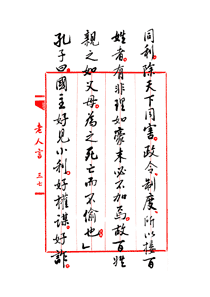 同利、除天下同害。政令、制度、所以接百
姓者、有非理如豪末、必不加焉。故百姓
親之如父母、為之死亡而不愉也」
孔子曰、國主好見小利、好權謀、好詐、
老人言 三七